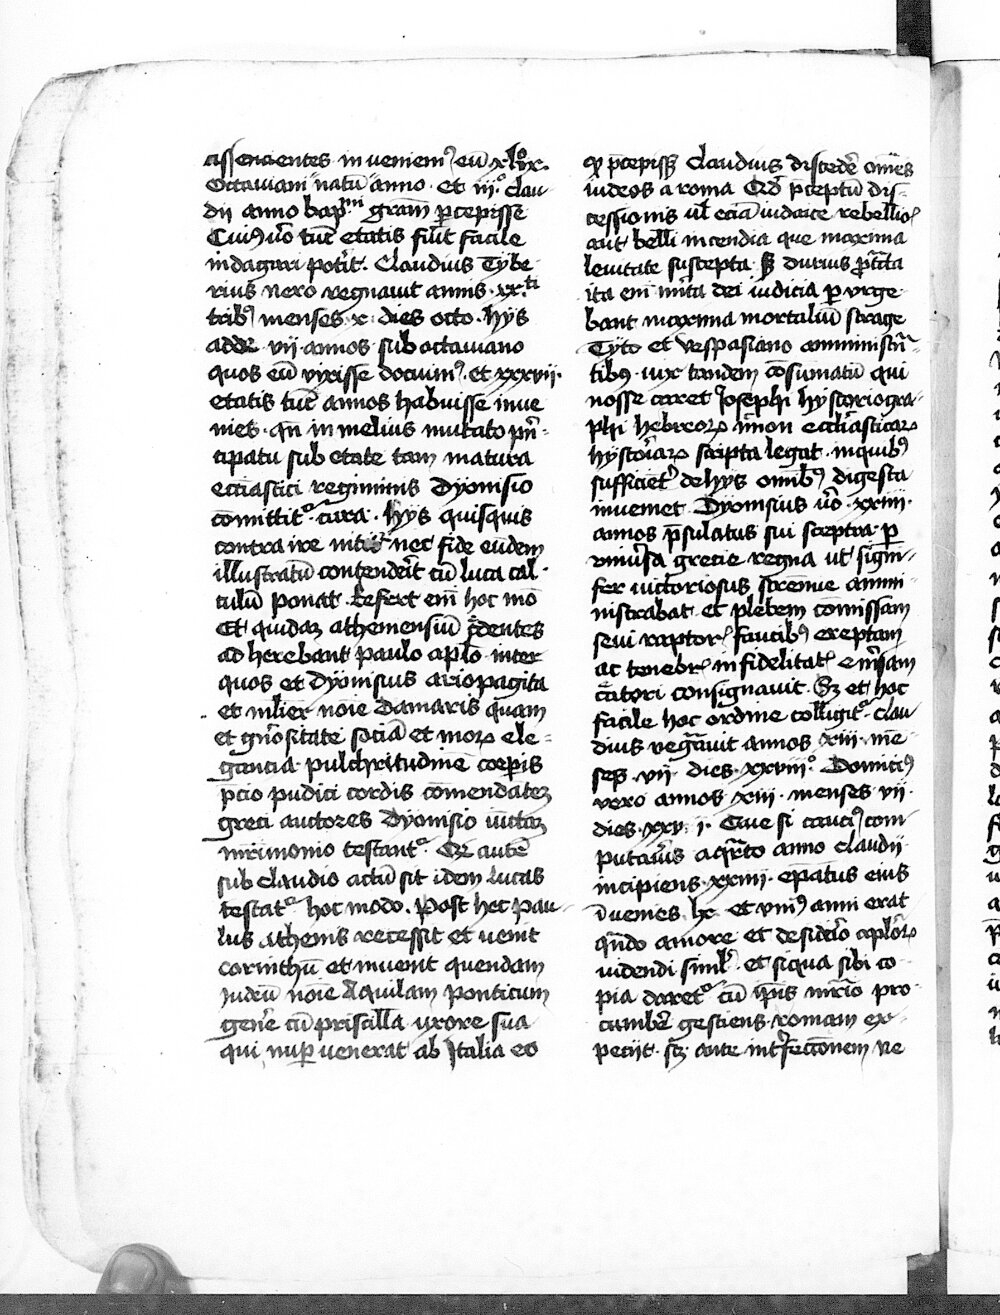 cissenientes inveniemꝰ eū xlix.
Octaviani natū anno et iii° clau
dii anno bapᵐⁱ gram̄ p̄cepisse
Cuiꝰ v̄o tūc etatis fūit facile
indagari pot̄it. Claudius Tybe
rius Nero regnavit annis xxᵗⁱ
tribꝰ menses x dies octo. hys
adde vii annos sub octaviano
quos eū vixisse docuimꝰ. et xxxvii.
etatis tūc annos habuisse inve
nies. qn̄ in melius mutato pn̄-
cipatu sub etate tam matura
eccīastici regiminis Dyonisio
cōmittitᵒ cura. hys quisquis
contra ire nititᵒ nec fide eūdem
illustratū contendeīt cū luca cal-
culū ponat. Refert em̄ hoc mō
Et quidaꝫ atheniensiū c̄dentes
ad herebant paulo ap̄lo inter
quos et Dyonisius ariopagita
et mlier noīe Damaris quam
et gn̄ositate sociā et moꝝ ele-
gancia pulchritudinē corp̄is
p̄cio pudici cordis cōmendateꝫ
greci auctores Dyonisio iūctaꝫ
mr̄imonio testantᵒ. Qꝫ autē
sub claudio actū sit idem lucas
testatᵒ hoc modo. Post hec pau
lus athenis recessit et venit
corinthū et invenit quendam
Iudeū noīe Aquilam ponticum
gen̄e cū priscilla uxore sua
qui nuꝑ venerat ab Italia eo
ꝙ p̄cepissꝫ Claudius discedē om̄es
iudeos a roma Qd̄ p̄ceptū dis-
cessionis ul̄ eciā iudaice rebellioꝭ
aut belli incendia que maxima
levitate suscepta sꝫ durius p̄tcta
ita em̄ in̄ita dei iudicia ꝑ urge
bant maxima mortaliū strage
Tyto et vespasiano amministn̄-
tibꝰ. vix tandem cōsumatū qui
nosse caret Iosephi hystoriogra-
phi hebreoꝝ n̄non ecclīasticaꝝ
hystoīaꝝ scripta legat. inquibꝰ
sufficiet̄ de hys omībꝰ digesta
inveniet. Dyonisius v̄o xxiiii
annos p̄sulatus sui sceptra ꝑ
univ̄sa grecie regna ut signi-
fer victoriosus strenue ammi-
nistrabat et plebem comissam
sevi raptorꝭ faucibꝰ exeptam
ac tenebrꝭ infidelitatꝭ em̄sam
c̄atori consignavit. Sꝫ et hoc
facile hoc ordine colligitᵒ. Clau
dius regn̄avit annos xiii. mē-
ses vii dies xxviii°. Domiciꝰ
vero annos xiii. menses vii.
dies xxv i. Que si cauciꝰ com-
putav̄is a q̄rto anno claudii
incipiens xxiiii. ep̄atus eius
īvenies. hc et uniꝰ anni erat
qn̄do amore et desid̄io ap̄loꝝ
videndi siml̄ et siqua sibi co
pia daretᵒ cū ip̄is mr̄io pro
cumbē gestiens romam ex-
peciit. sꝫ ante int̄fectōnem ne